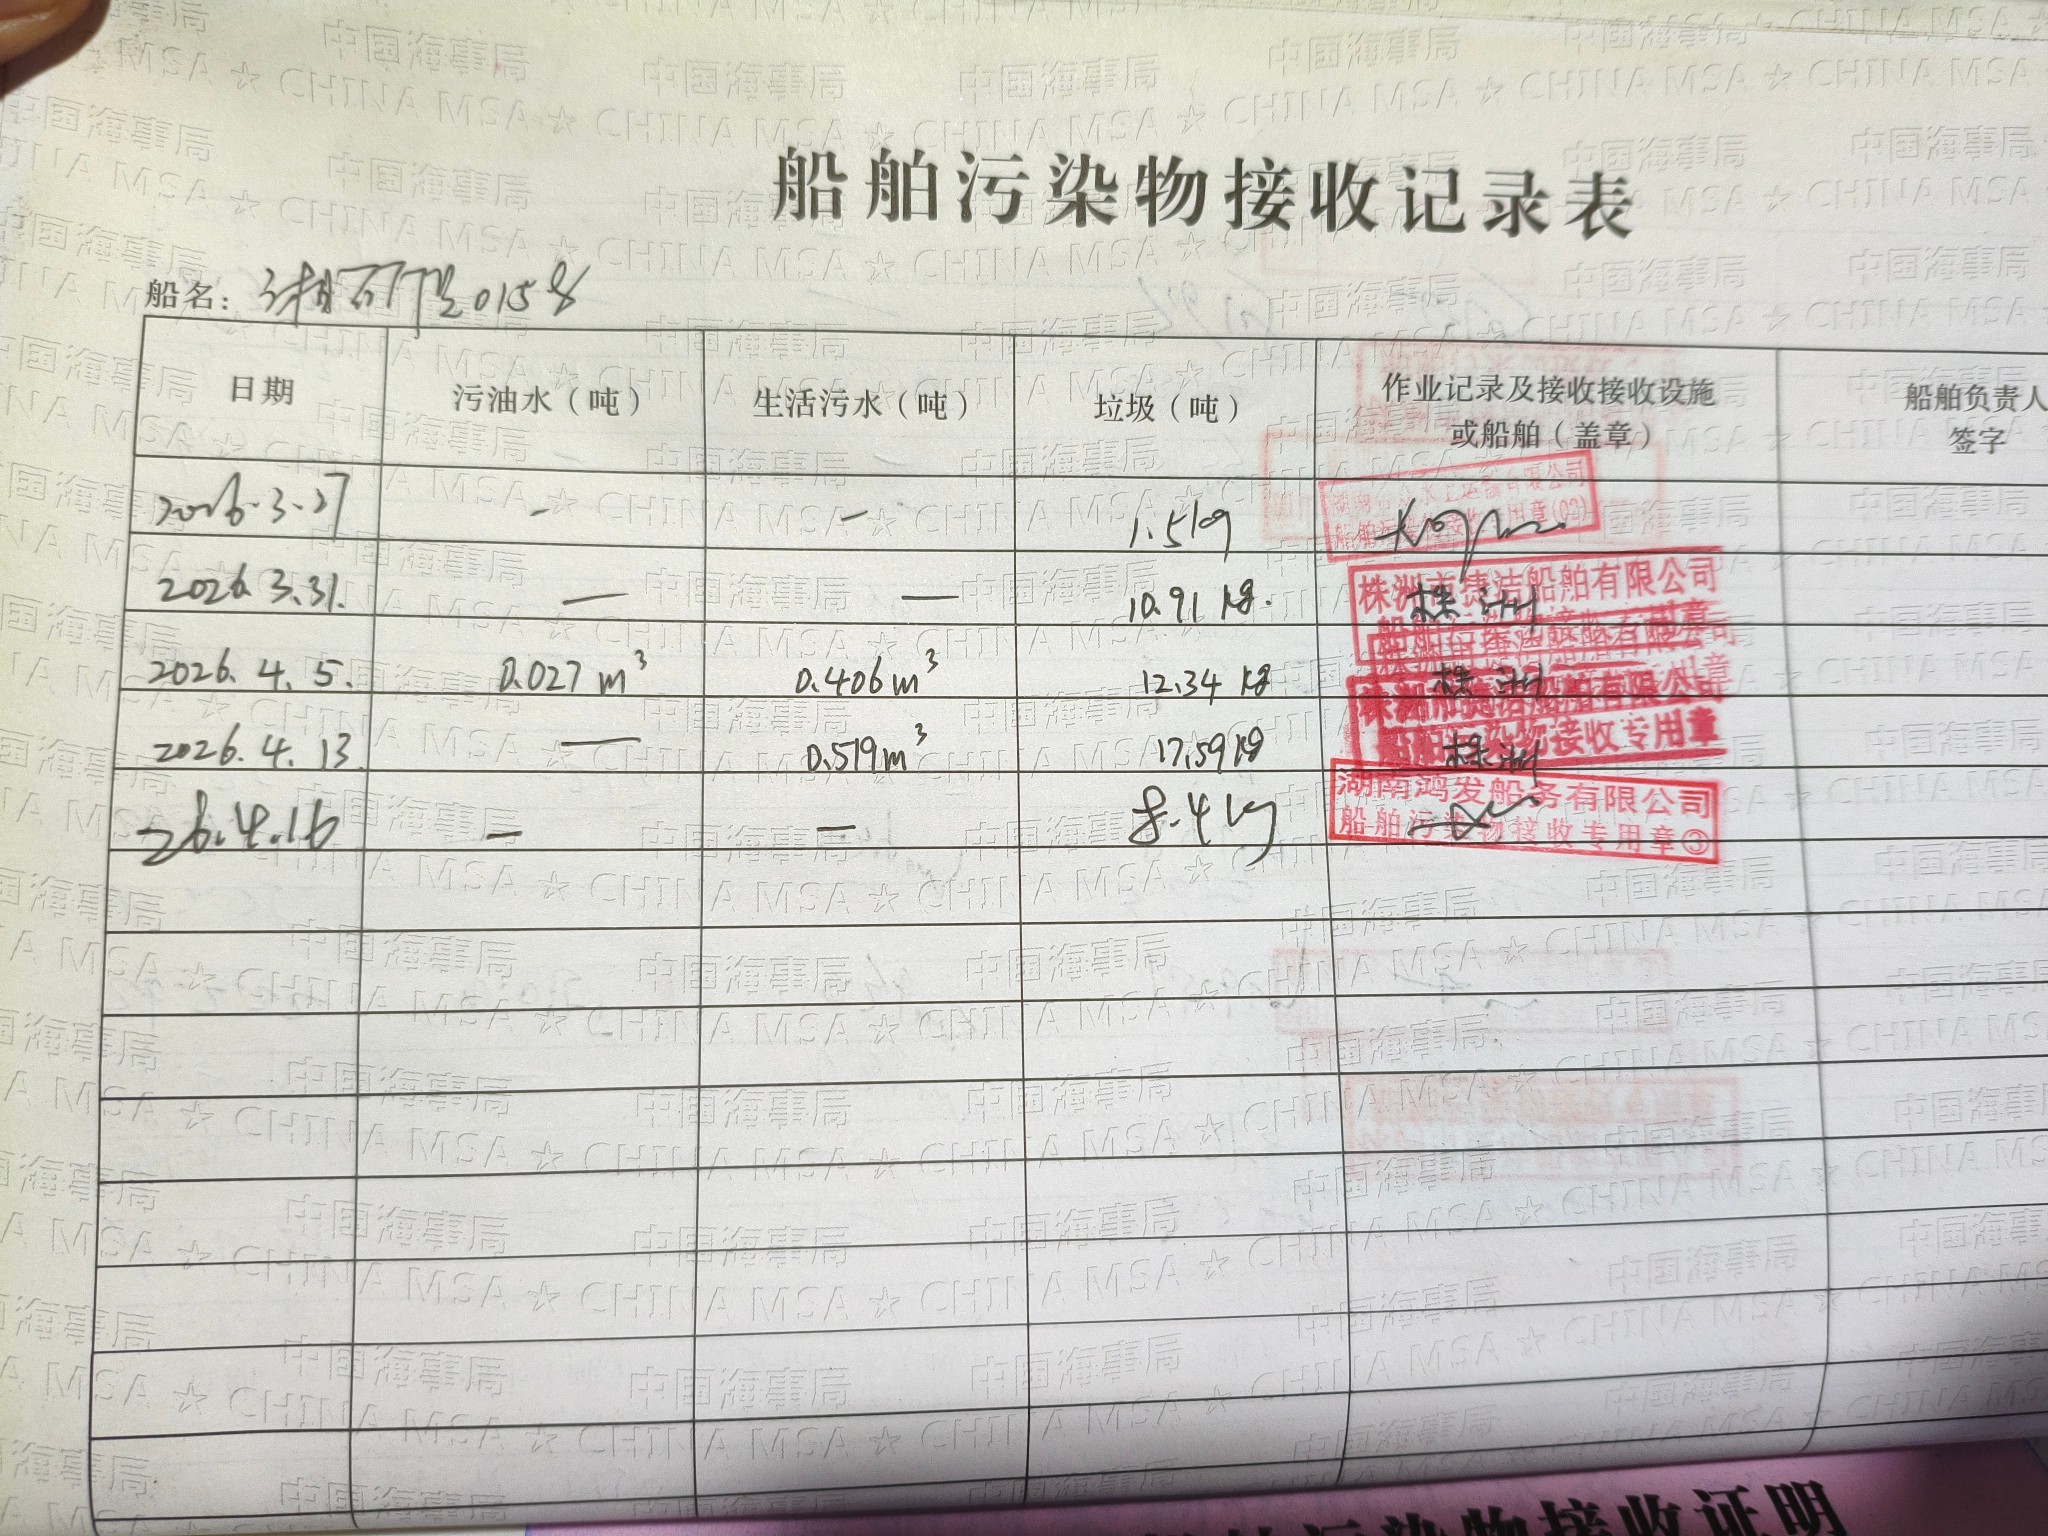 船舶污染物接收记录表
船名: 湘 0158
日期 污油水（吨） 生活污水（吨） 垃圾（吨） 作业记录及接收接收设施或船舶（盖章） 船舶负责人签字
2026.3.27 - - 1.5kg
船舶污染物接收专用章(02)
2026.3.31. — — 10.91 kg. 株洲
株洲市捷洁船舶有限公司
2026.4.5. 0.027 m³ 0.406 m³ 12.34 kg 株洲
2026.4.13 — 0.519 m³ 17.59 kg 株洲
株洲市捷洁船舶有限公司
船舶污染物接收专用章
26.4.16 - - 8.4 kg
湖南鸿发船务有限公司
船舶污染物接收专用章③
污染物接收证明
中国海事局
CHINA MSA ☆ CHINA MSA ☆ CHINA MSA